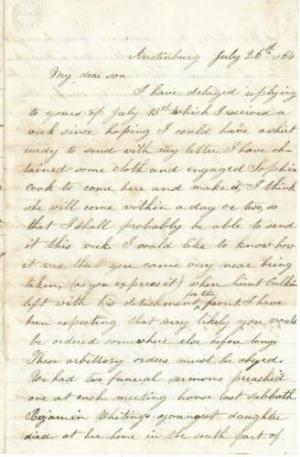 Austinburg July 26th /64
My dear son
I have delayed replying
to yours of July 15th which I received a
week since hoping I could have a shirt
ready to send with my letter I have ob
tained some cloth and engaged Sophia
Cook to come here and make it, I think
she will come within a day or two, so
that I shall probably be able to send
it this week I would like to know how
it was that you came very near being
taken (as you express it) when Lieut
left with his detachment for the front I have
been expecting that very likely you would
be ordered somewhere else before long
These arbitrary orders must be obeyed.
We had two funeral sermons preached
one at each meeting house last Sabbath
Benjamin Whiting's youngest daughter
died at her home in the south part of